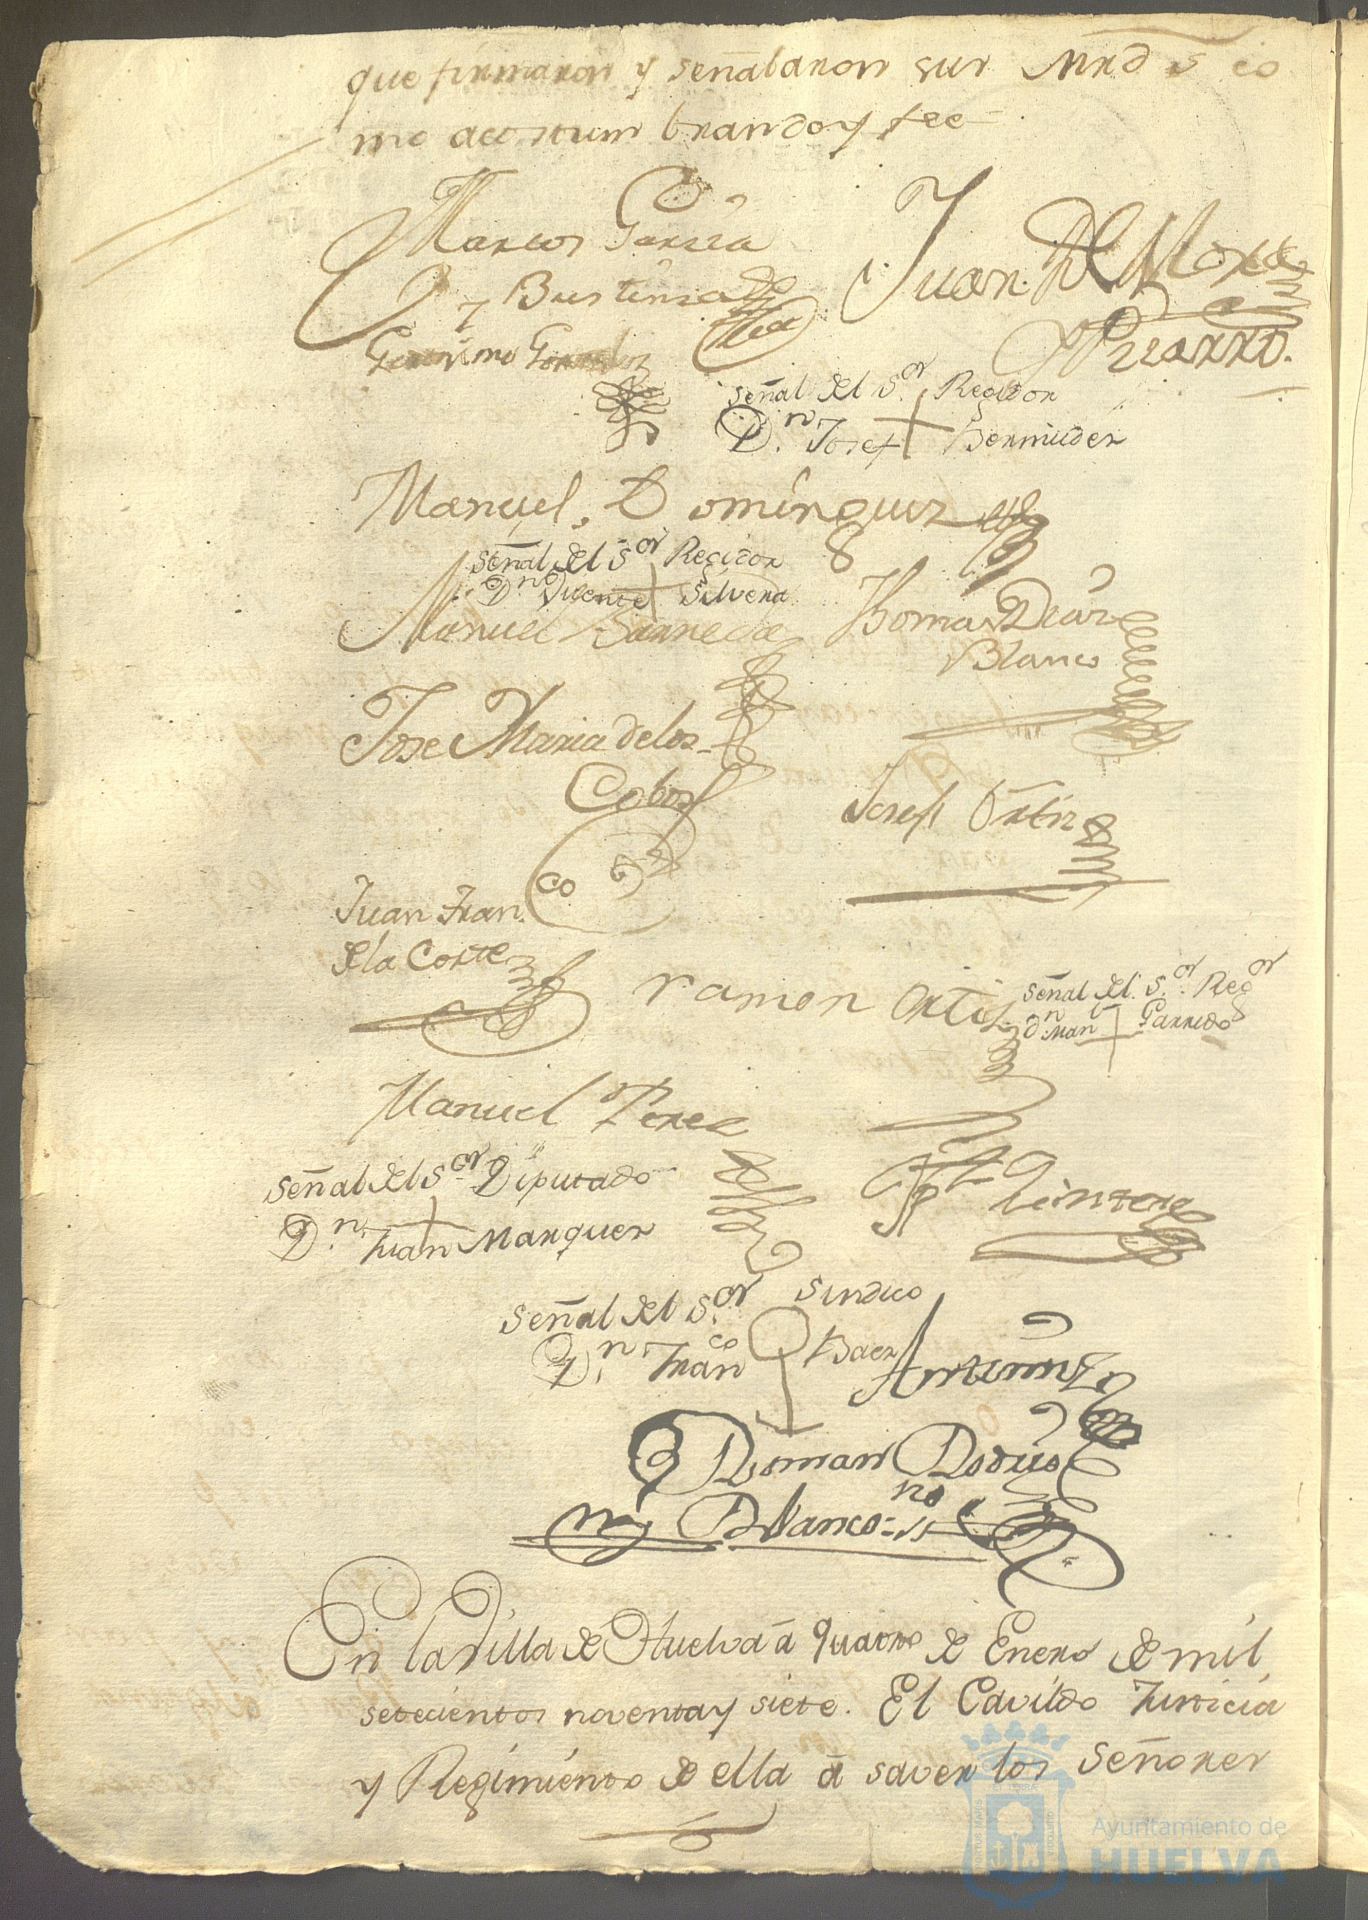 que firmaron y señalaron sus Mrds co
mo acostumbran doy fee
Marcos Garcia
y Bustinza
Juan De Mora
y Pizarro.
Geronimo Gonzalez
Señal del Sor. Regidor
Dn. Josef Bermudez
Manuel Dominguez
Señal del Sor Regidor
Dn Vicente Silvera
Manuel Barreda
Thomas Diaz
Blanco
Jose Maria de los
Cobos
Josef Ortiz
Juan Franco
de la Corte
ramon Ortis
Señal del Sor. Regor
dn Manl Garrido
Manuel Perez
Señal del Sor Diputado
Dn. Juan Marquez
Quintero
Señal del Sor. Sindico
Dn. Franco Baez
Antemi
Roman Rodrio
y Blanco
En la Villa de Huelva â quatro de Enero de mil
setecientos noventa y siete. El Cavildo Justicia
y Regimiento de ella â saver los Señores
Ayuntamiento de
HUELVA